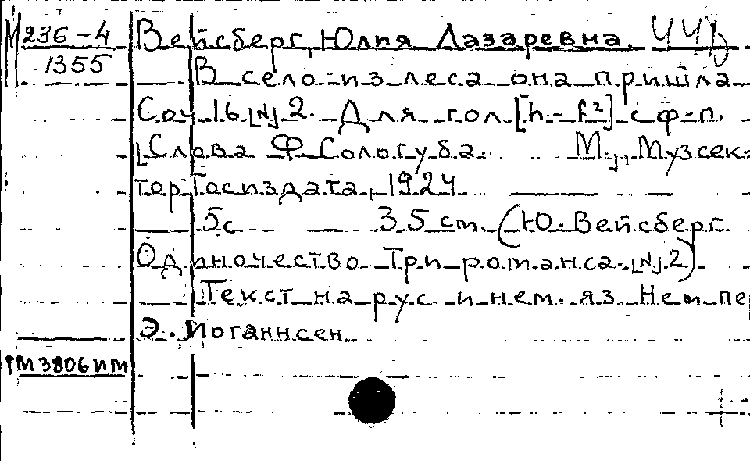 М 236-4 Вейсберг, Юлия Лазаревна.
1355 В село из леса она пришла
Соч. 16, [№] 2. Для гол. [h-f²] с ф-п.
Слова Ф. Сологуба. М., Музсек-
тор Госиздата, 1924
5 с 35 см. (Ю. Вейсберг
Одиночество. Три романса. [№] 2)
Текст на рус и нем. яз. Нем пе
Э. Иоганнсен
ПМ 3806 НМ